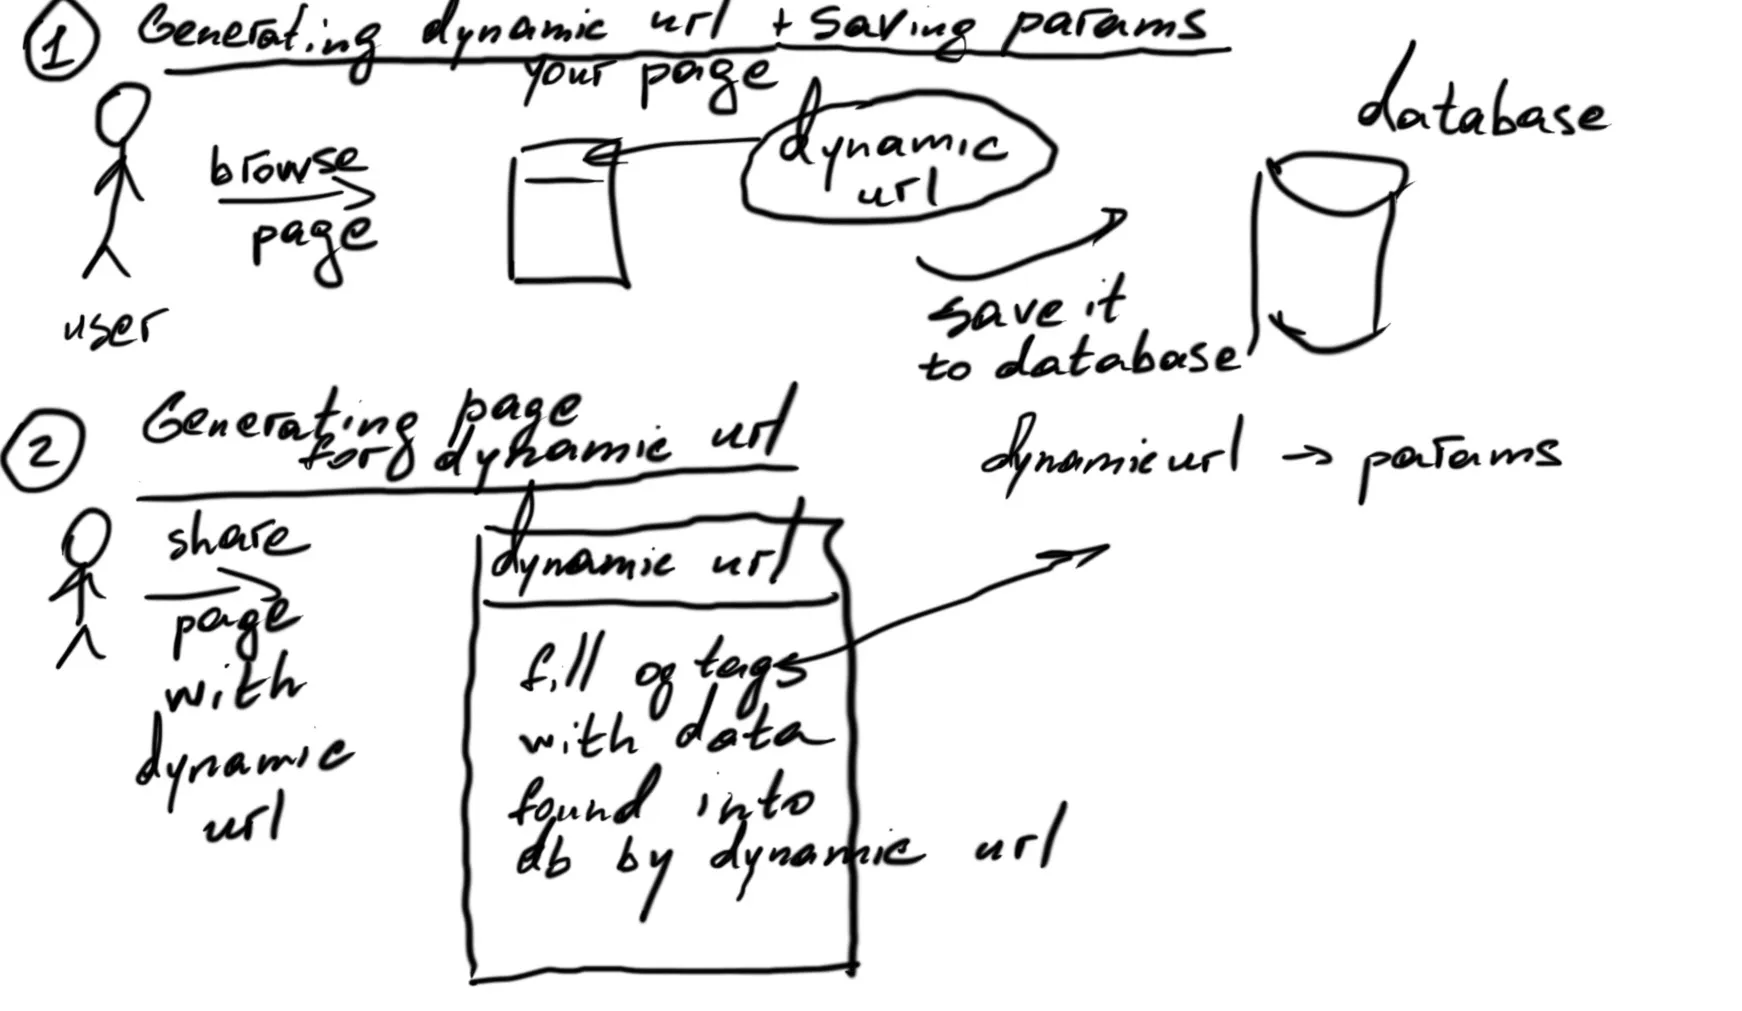 1
Generating dynamic url + Saving params
your page
database
browse
page
dynamic
url
user
save it
to database
2
Generating page
for dynamic url
dynamic url → params
share
page
with
dynamic
url
dynamic url
fill og tags
with data
found into
db by dynamic url